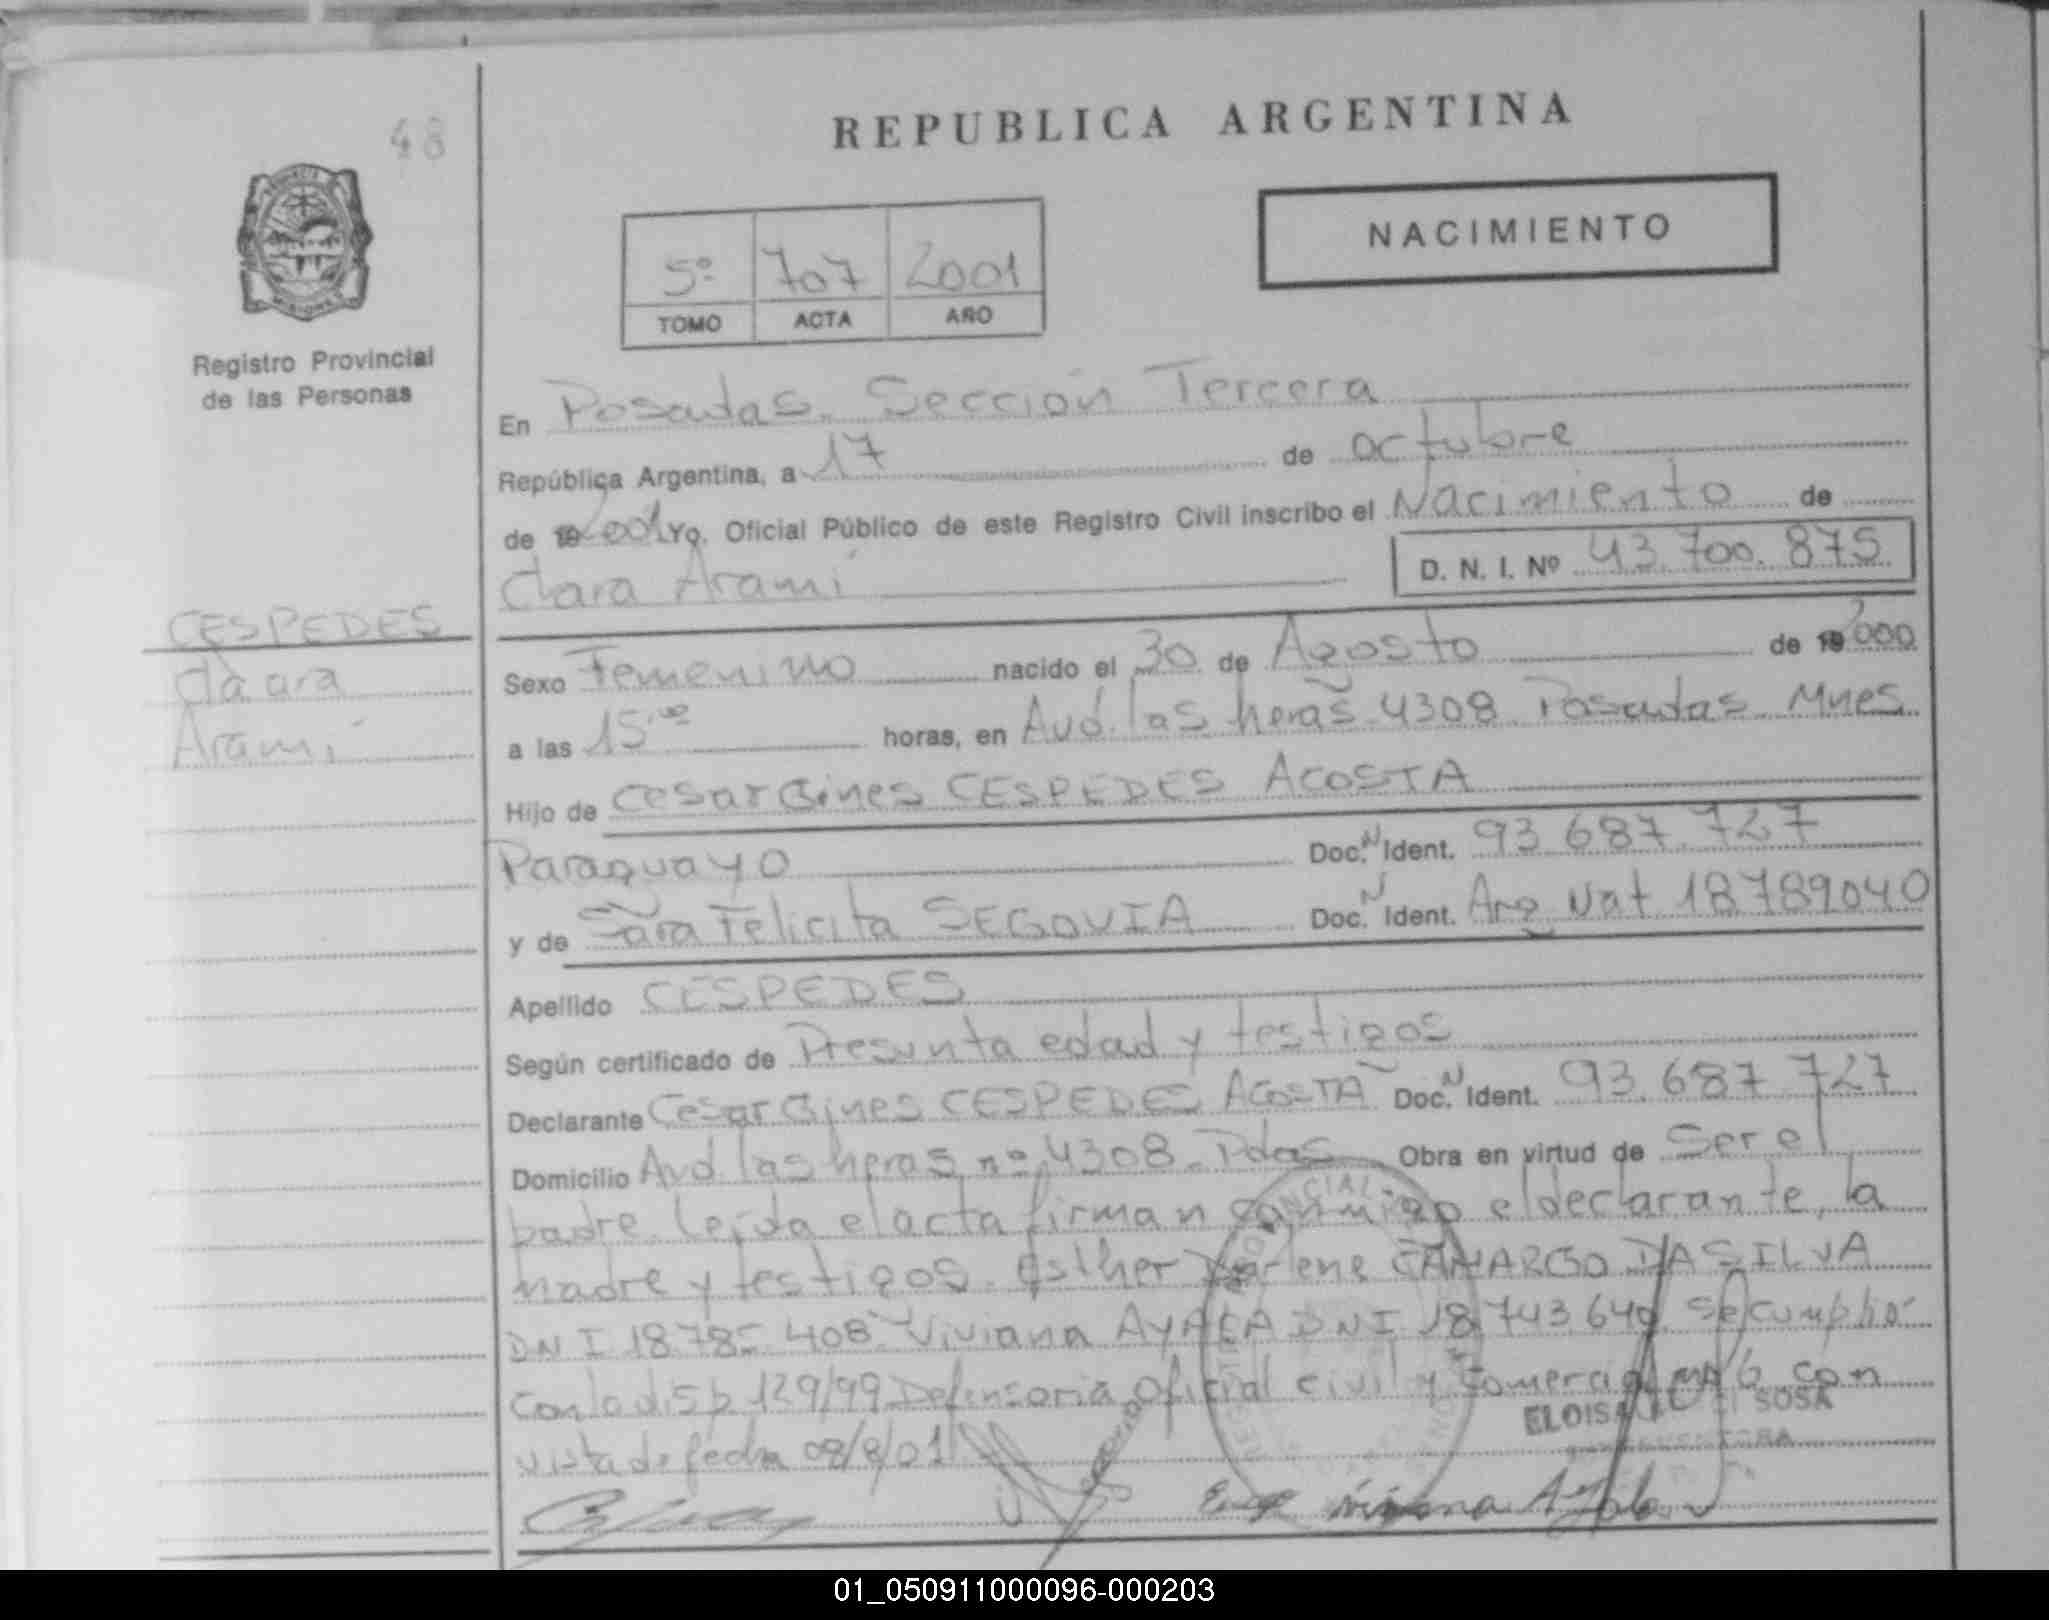 48
REPUBLICA ARGENTINA
NACIMIENTO
5º 707 2001
TOMO ACTA AÑO
Registro Provincial
de las Personas
En Posadas. Sección Tercera
República Argentina, a 17 de octubre
de 19 2001 Yo, Oficial Público de este Registro Civil inscribo el Nacimiento de
Clara Aramí D. N. I. Nº 43.700.875
CESPEDES
Clara
Aramí
Sexo Femenino nacido el 30 de Agosto de 19 2000
a las 15 horas, en Avd. las heras 4308 Posadas Mnes
Hijo de Cesar Gines CESPEDES ACOSTA
Paraguayo Doc. N Ident. 93 687 727
y de Sara Felicita SEGOVIA Doc. N Ident. Arg Nat 18789040
Apellido CESPEDES
Según certificado de Presunta edad y testigos
Declarante Cesar Gines CESPEDES ACOSTA Doc. N Ident. 93.687 727
Domicilio Avd. las heras nº 4308 - Pdas Obra en virtud de Ser el
padre. Leída el acta firman conmigo el declarante, la
madre y testigos. Esther CAMARGO DA SILVA
DNI 18.785 408 Viviana AYALA DNI 18 743 640. se cumplió
con la disp 129/99 Defensoria Oficial civil y Comercial nº 6 con
vista de fecha 08/8/01
ELOISA SOSA
Viviana Ayala
01_050911000096-000203